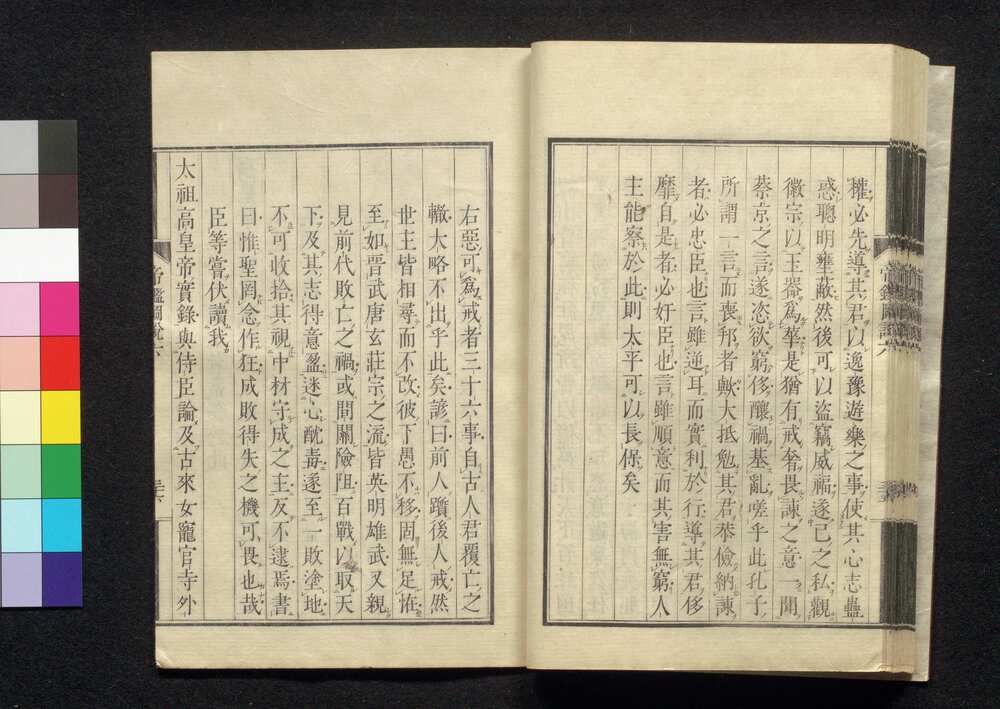 權必先導其君以逸豫遊樂之事使其心志蠱
惑聰明壅蔽然後可以盜竊威福遂己之私觀
徽宗以玉器爲華是猶有戒奢畏諫之意一聞
蔡京之言遂恣欲窮侈釀禍基亂嗟乎此孔子
所謂一言而喪邦者歟大抵勉其君恭儉納諫
者必忠臣也言雖逆耳而實利於行導其君侈
靡自是者必奸臣也言雖順意而其害無窮人
主能察於此則太平可以長保矣
右惡可爲戒者三十六事自古人君覆亡之
轍大略不出乎此矣諺曰前人躓後人戒然
世主皆相尋而不改彼下愚不移固無足怪
至如晉武唐玄莊宗之流皆英明雄武又親
見前代敗亡之禍或間關險阻百戰以取天
下及其志得意盈迷心酖毒遂至一敗塗地
不可收拾其視中材守成之主反不逮焉書
曰惟聖罔念作狂成敗得失之機可畏也哉
臣等嘗伏讀我
太祖高皇帝實錄與侍臣論及古來女寵宦寺外
帝鑑圖說六